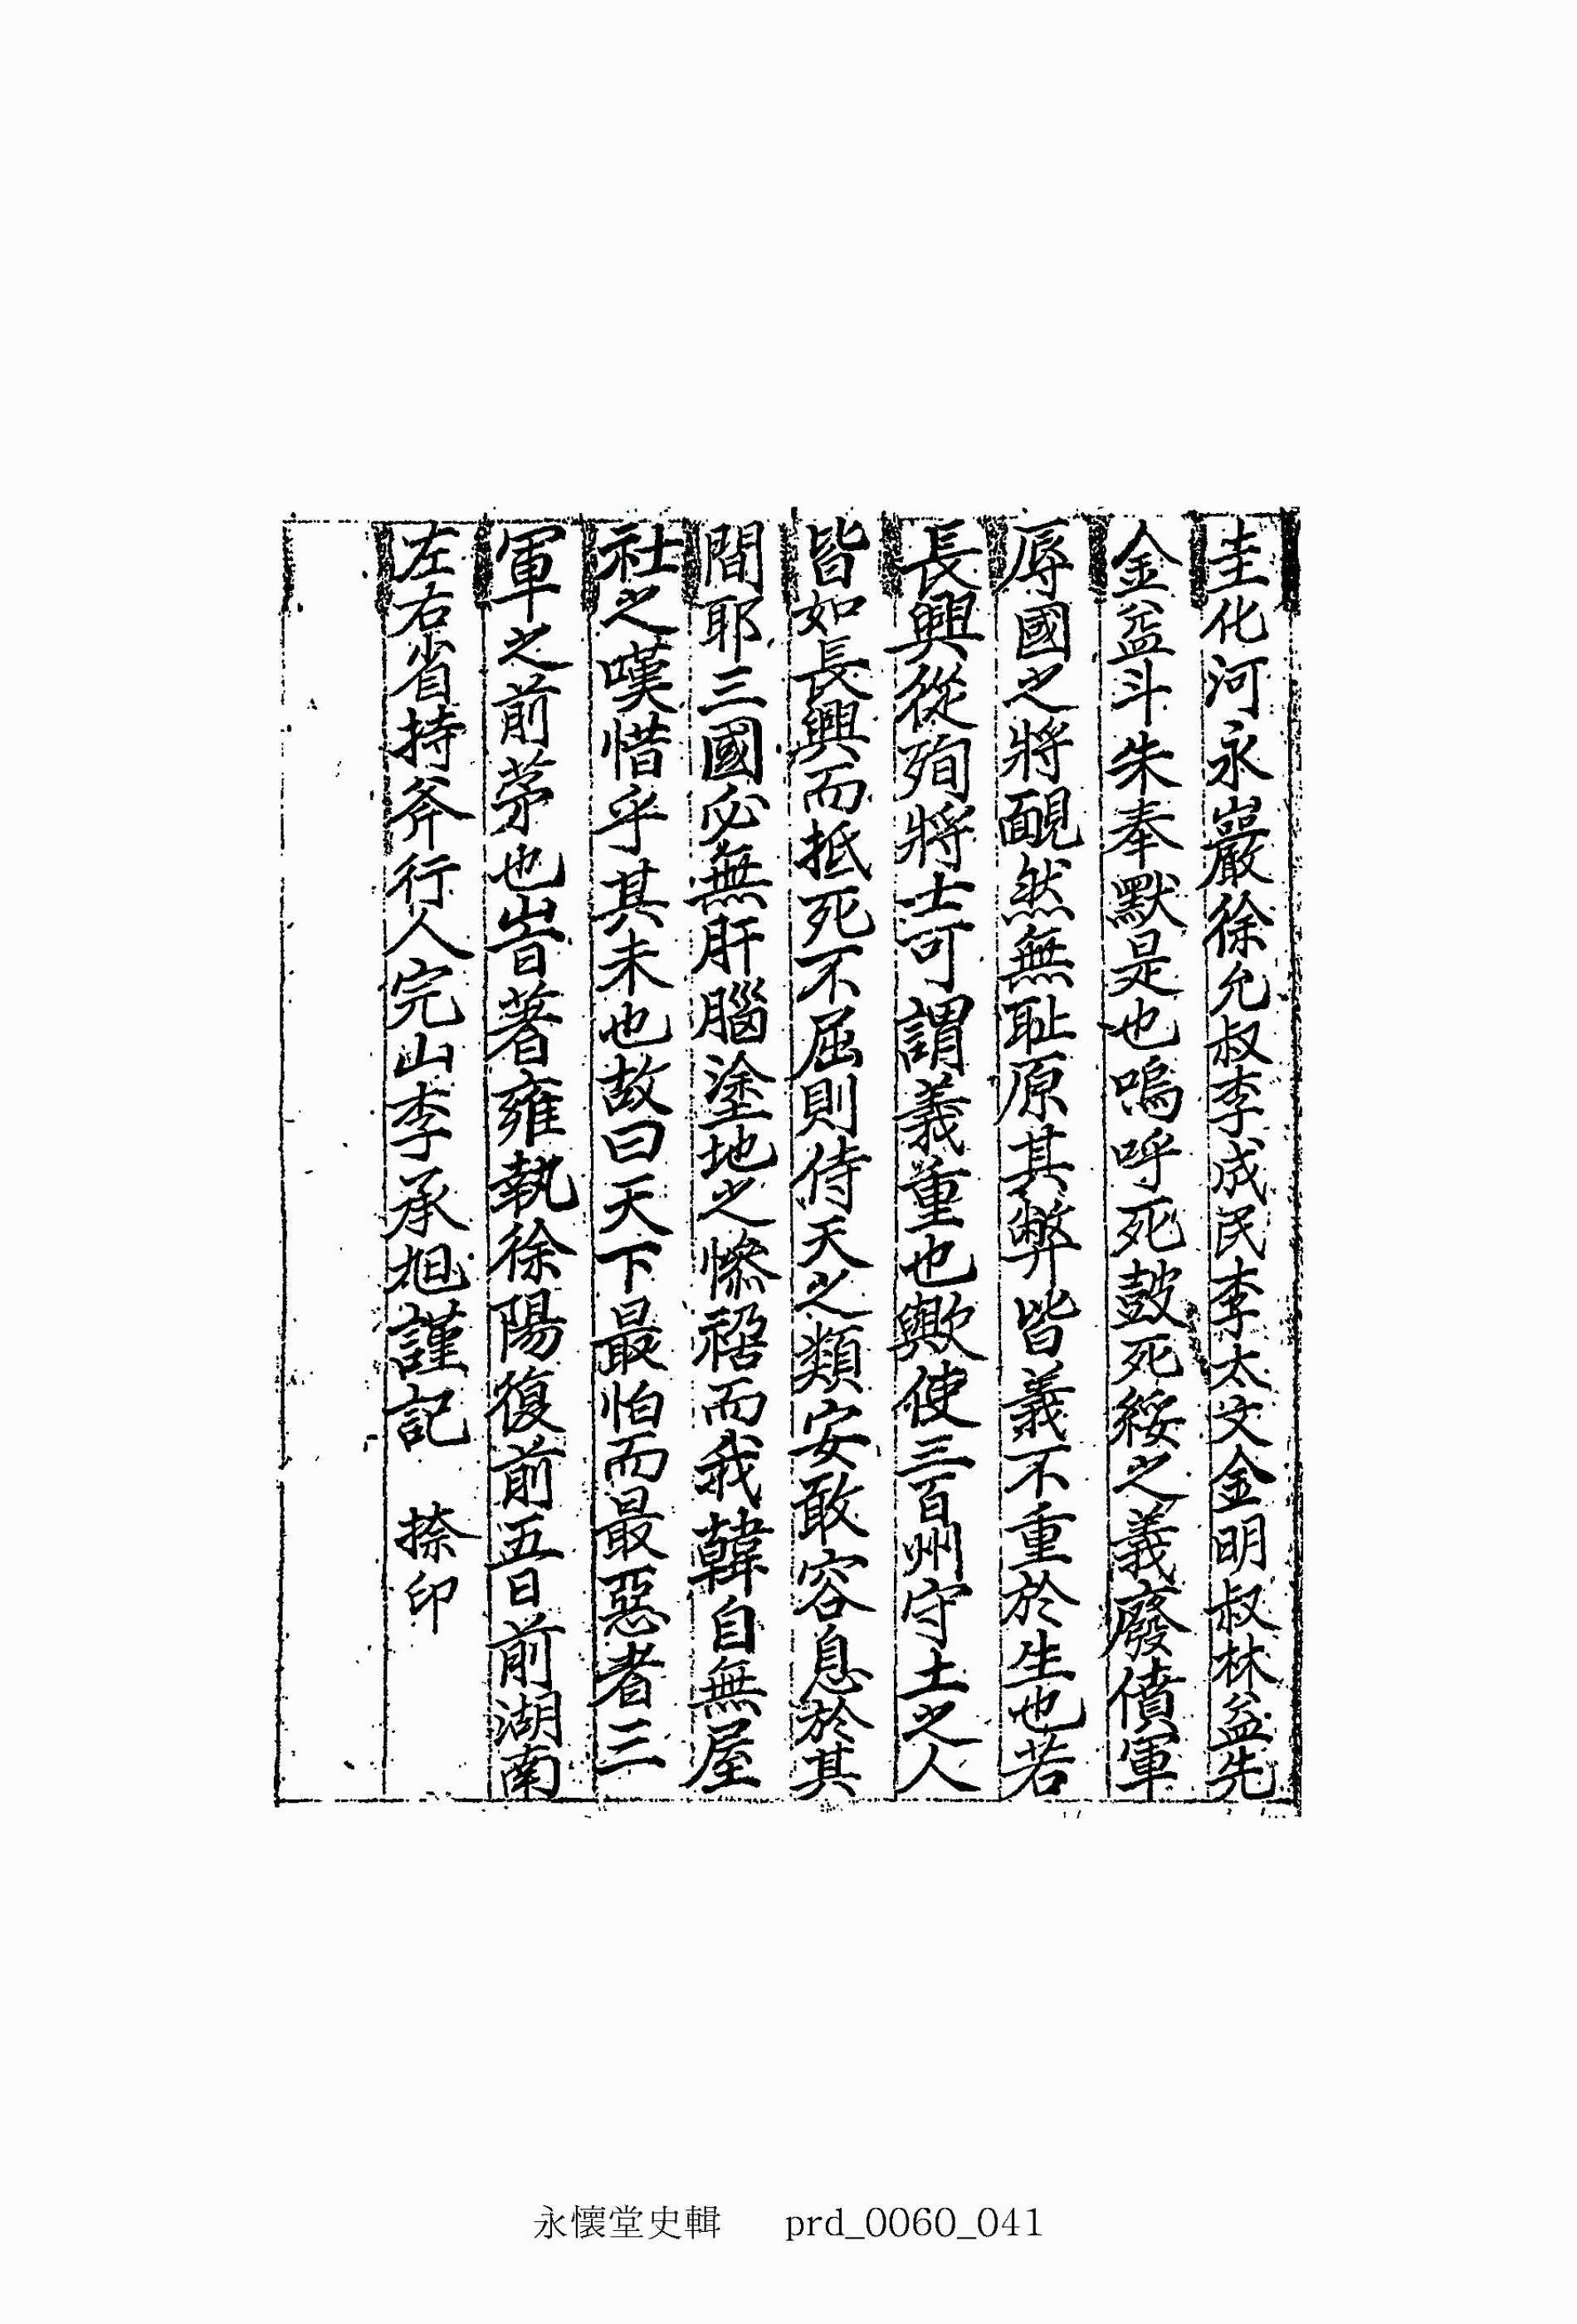 圭化河永巖徐允叔李成民李太文金明叔林益先
金益斗朱奉默是也嗚呼死鼓死綏之義廢僨軍
辱國之將靦然無耻原其弊皆義不重於生也若
長興從殉將士可謂義重也歟使三百州守土之人
皆如長興而抵死不屈則侍天之類安敢容息於其
間耶三國必無肝腦塗地之慘裾而我韓自無屋
社之嘆惜乎其未也故曰天下最怕而最惡者三
軍之前茅也旹著雍執徐陽復前五日前湖南
左右省持斧行人完山李承旭謹記 捺印
永懷堂史輯 prd_0060_041